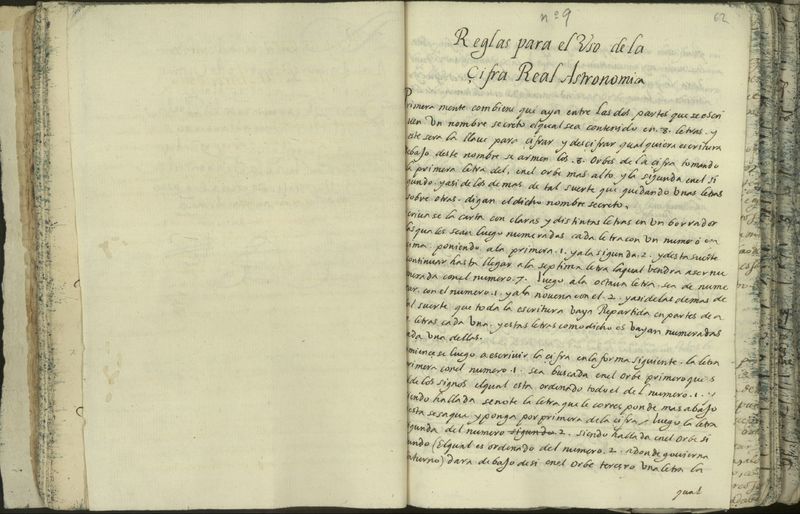 nº 9
62
Reglas para el Uso de la
Çifra Real Astronomica
Primera mente combiene que aya entre las dos partes que se escri
uen Un nombre secreto elqual sea contenido en .8. letras. y
este sera la llaue para cifrar y descifrar qualquiera escritura
debajo deste nombre se armen los .8. Orbes de la cifra tomando
la primera letra del, en el orbe mas alto y la sigunda en el si
gundo. y asi de los de mas de tal suerte que quedando Unas letras
sobre otras. digan el dicho nombre secreto.
escriua se la carta con claras y distintas letras en Un borrador
las quales sean luego numeradas cada letra con Un numero en
cima. poniendo a la primera .1. y a la sigunda .2. y desta suerte
continuar hasta llegar a la septima letra laqual vendra a ser nu
merada con el numero .7. luego a la octaua letra. sea de nume
rar. con el numero .1. y a la nouena con el .2. y asi de las demas de
tal suerte que toda la escritura vaya Repartida en partes de a
letras cada Una. y estas letras como dicho es vayan numeradas
cada Una dellas.
comience se luego a escriuir la cifra en la forma siguiente. la letra
primera con el numero .1. sea buscada en el Orbe primero que s
de los signos elqual esta ordenado todo el del numero .1. y
siendo hallada se note la letra que le corresponde mas abajo
esta se saque y ponga por primera de la cifra / luego la letra
sigunda del numero sigundo 2. siendo hallada en el Orbe si
gundo (Elqual es ordenado del numero .2. adonde gouierna
saturno) dara debajo de si en el Orbe tercero Una letra la
qual